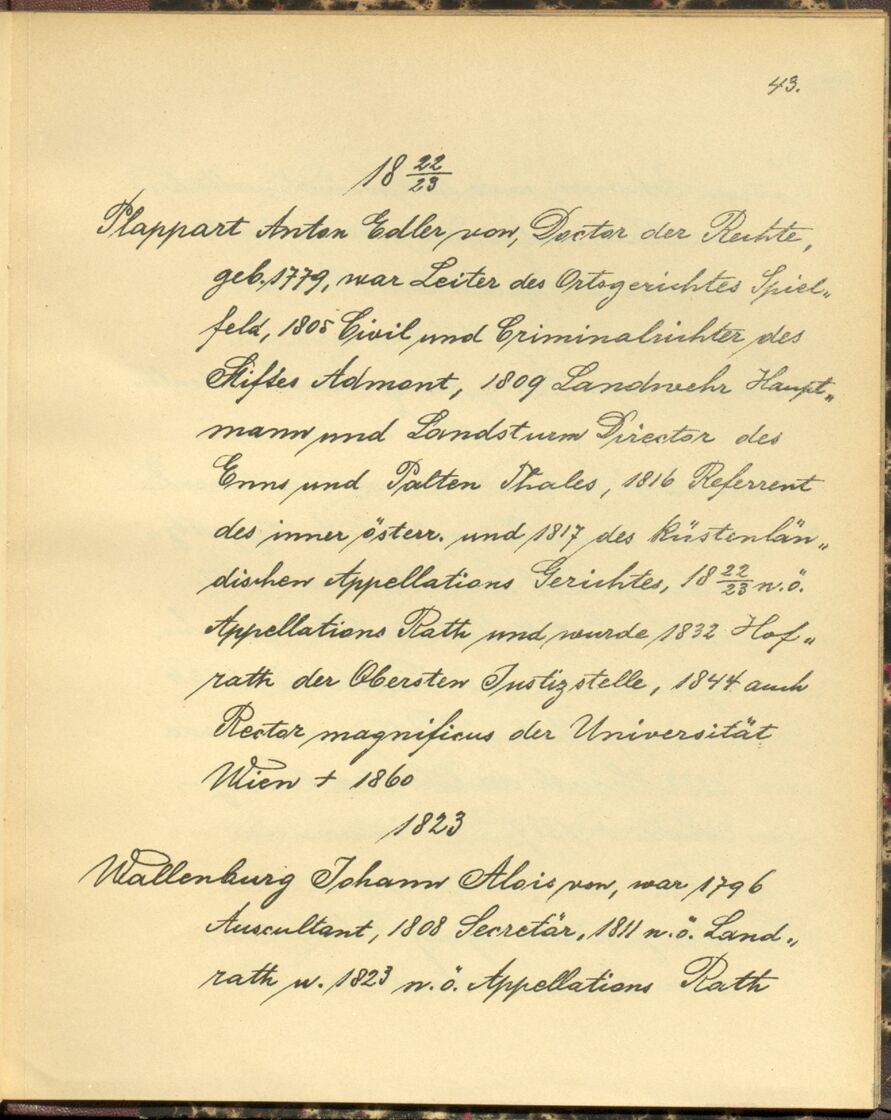 43.
18 22/23
Plappart Anton Edler von, Doctor der Rechte,
geb. 1779, war Leiter des Ortsgerichtes Spiel„
feld, 1805 Civil und Criminalrichter des
Stiftes Admont, 1809 Landwehr Haupt„
mann und Landsturm Director des
Enns und Palten Thales, 1816 Referrent
des inner österr. und 1817 des küstenlän„
dischen Appellations Gerichtes, 18 22/23 n.ö.
Appellations Rath und wurde 1832 Hof„
rath der Obersten Justizstelle, 1844 auch
Rector magnificus der Universität
Wien + 1860
1823
Wallenburg Johann Alois von, war 1796
Auscultant, 1808 Secretär, 1811 n.ö. Land„
rath u. 1823 n.ö. Appellations Rath